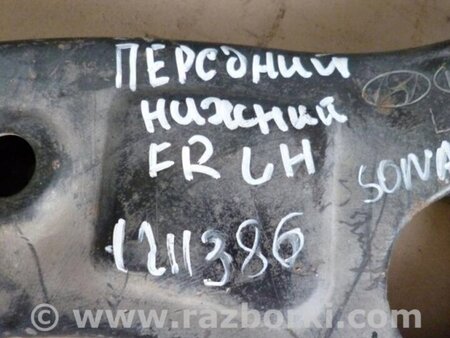 ПЕРЕДНИЙ
НИЖНИЙ
FR LH
SONA
1211386
© www.razborki.com